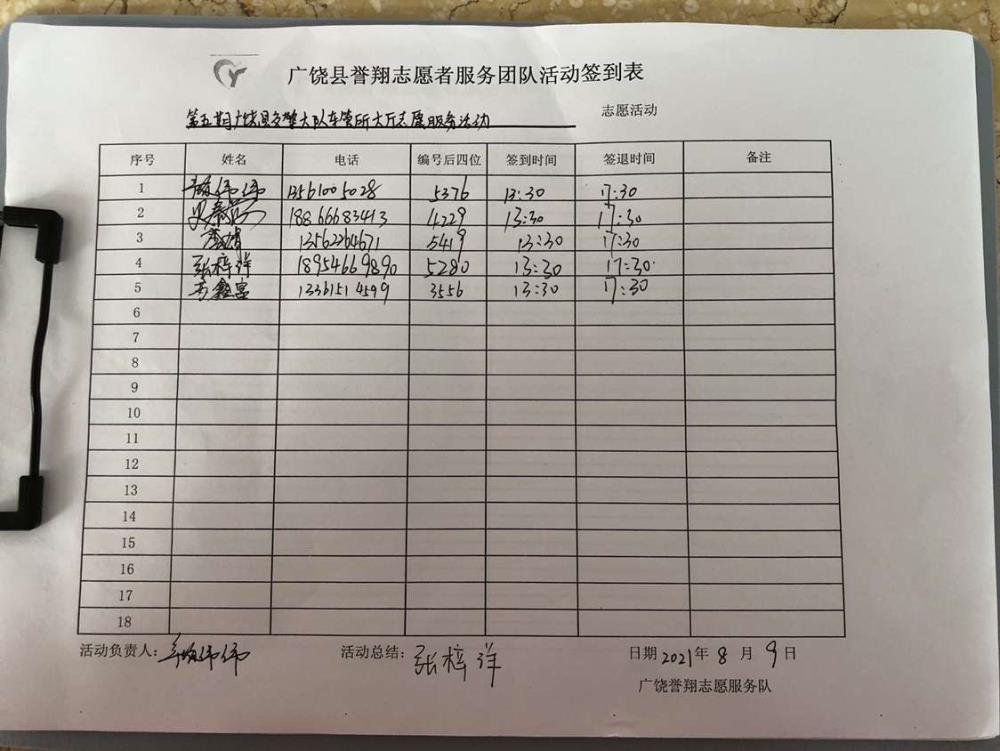 CY
广饶县誉翔志愿者服务团队活动签到表
第五期广饶县交警大队车管所大厅志愿服务活动 志愿活动
序号 姓名 电话 编号后四位 签到时间 签退时间 备注
1 伟伟 13561005028 5376 13:30 17:30
2 18866683413 4229 13:30 17:30
3 13562264671 5419 13:30 17:30
4 张梓洋 18954669890 5280 13:30 17:30
5 13361514599 3556 13:30 17:30
6
7
8
9
10
11
12
13
14
15
16
17
18
活动负责人: 伟伟 活动总结: 张梓洋 日期 2021年 8 月 9 日
广饶誉翔志愿服务队